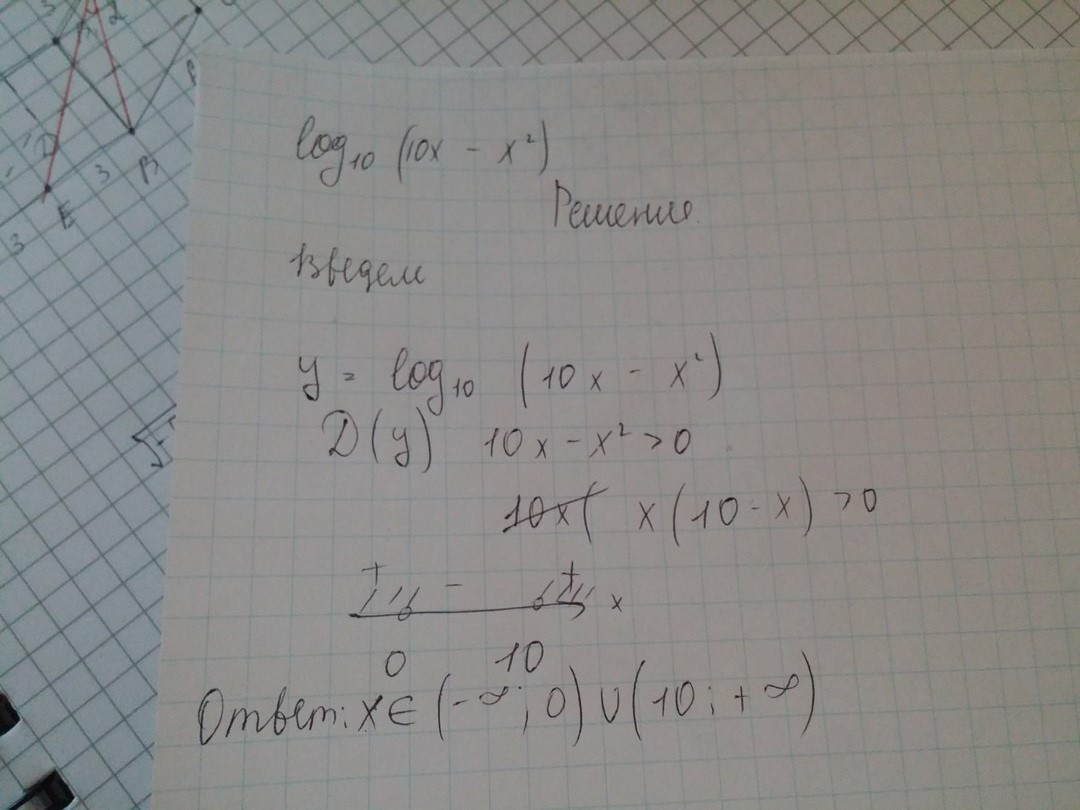 3 2
D
3 B
E
3
log₁₀ (10x - x²)
Решение
Введем
y = log₁₀ (10x - x²)
D(y) 10x - x² > 0
10x( x(10 - x) > 0
+ - + x
0 10
Ответ: x ∈ (-∞; 0) ∪ (10; +∞)